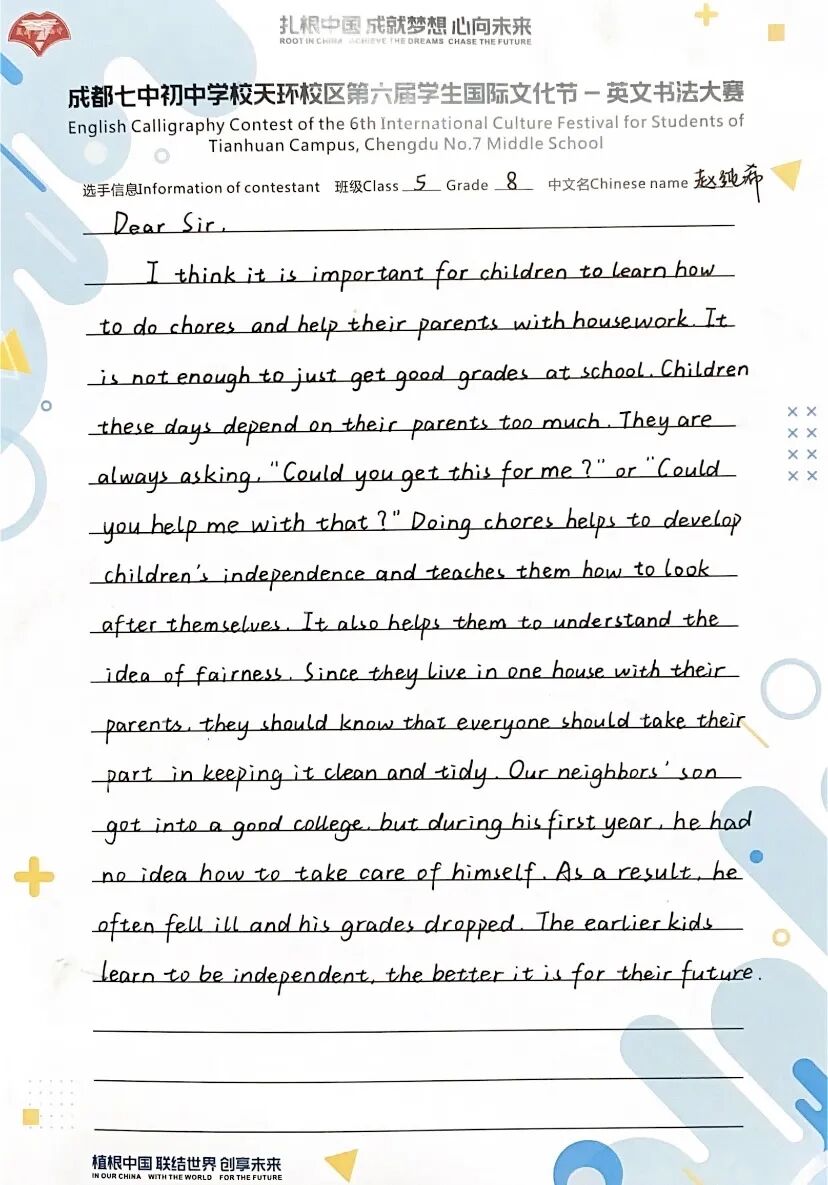 扎根中国 成就梦想 心向未来
ROOT IN CHINA ACHIEVE THE DREAMS CHASE THE FUTURE
成都七中初中学校天环校区第六届学生国际文化节 – 英文书法大赛
English Calligraphy Contest of the 6th International Culture Festival for Students of
Tianhuan Campus, Chengdu No.7 Middle School
选手信息Information of contestant 班级Class 5 Grade 8 中文名Chinese name 赵纯希
Dear Sir,
I think it is important for children to learn how
to do chores and help their parents with housework. It
is not enough to just get good grades at school. Children
these days depend on their parents too much. They are
always asking, "Could you get this for me?" or "Could
you help me with that?" Doing chores helps to develop
children's independence and teaches them how to look
after themselves. It also helps them to understand the
idea of fairness. Since they live in one house with their
parents, they should know that everyone should take their
part in keeping it clean and tidy. Our neighbors' son
got into a good college, but during his first year, he had
no idea how to take care of himself. As a result, he
often fell ill and his grades dropped. The earlier kids
learn to be independent, the better it is for their future.
植根中国 联结世界 创享未来
IN OUR CHINA WITH THE WORLD FOR THE FUTURE